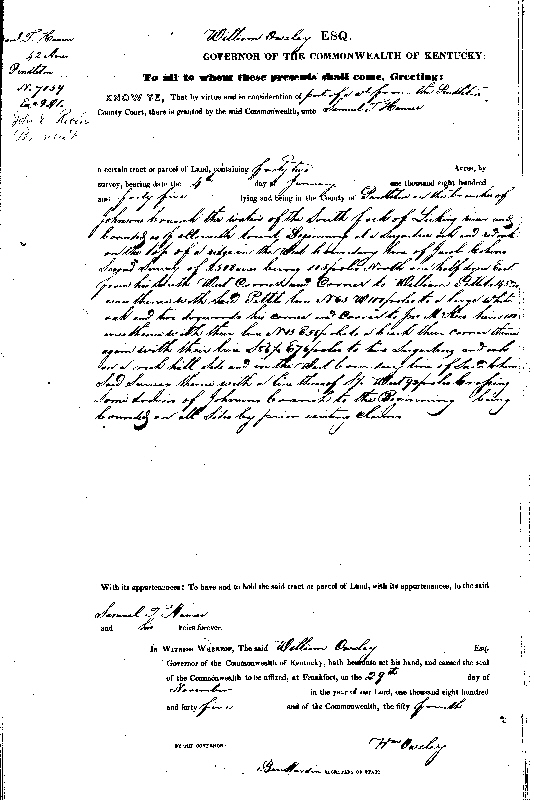 Saml T. Hamer
42 Acres
Pendleton
N. 7054
William Owsley ESQ.
GOVERNOR OF THE COMMONWEALTH OF KENTUCKY:
To all to whom these presents shall come, Greeting:
KNOW YE, That by virtue and in consideration of part of a wt from the Pendleton
County Court, there is granted by the said Commonwealth, unto Samuel T Hamer
a certain tract or parcel of Land, containing forty two Acres, by
survey, bearing date the 4th day of January one thousand eight hundred
and forty five lying and being in the County of Pendleton on the branches of
Johnsons branch the waters of the South fork of Licking river and
bounded as followeth towit Beginning at a sugartree ash and
on the top of a ridge in the West boundary line of Jacob Cohens
Survey of 2500 acres being 105 poles North one half degree East
from his South West Corner and Corner to William
acres thence with said line N63 W100 poles to a large white
oak and two dogwoods his corner and Corner to
thence with their line N13 E55 poles to a their corner thence
again with their line S56 E76 poles to two Sugartrees and ash
on a rock hill side and in the West boundary line of Sd. Cohens
Said Survey thence with a line thereof So West 92 poles Crossing
branches of Johnsons branch to the Beginning being
bounded on all sides by prior existing claims
With its appurtenances: To have and to hold the said tract or parcel of Land, with its appurtenances, to the said
Samuel T Hamer
and his heirs forever.
In Witness Whereof, The said William Owsley Esq.
Governor of the Commonwealth of Kentucky, hath hereunto set his hand, and caused the seal
of the Commonwealth to be affixed, at Frankfort, on the 29th day of
November in the year of our Lord, one thousand eight hundred
and forty five and of the Commonwealth, the fifty fourth
BY THE GOVERNOR: Wm Owsley
Ben Hardin SECRETARY OF STATE